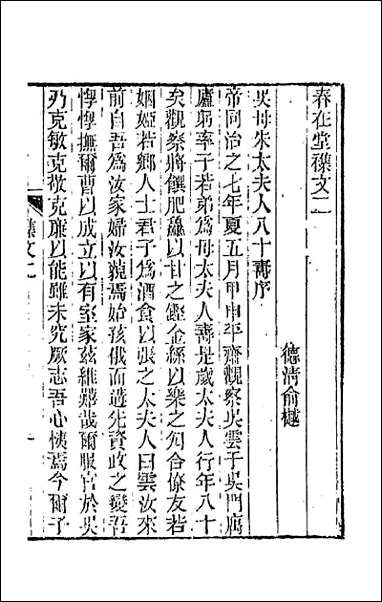 春在堂襍文二
德清俞樾
吳母朱太夫人八十壽序
帝同治之七年夏五月甲申平齋觀察吳雲于吳門寓
廬躬率子若弟為母太夫人壽是歲太夫人行年八十
矣觀察將饌肥鱻以甘之鏗金絲以樂之匄合僚友若
姻婭若鄉人士君子為酒食以張之太夫人曰雲汝來
前自吾為汝家婦汝藐焉始孩俄而遘先資政之變吾
惸惸撫爾曹以成立以有室家茲維艱哉爾服官於吳
乃克敏克敬克廉以能雖未究厥志吾心恔焉今爾子
襍文二
一